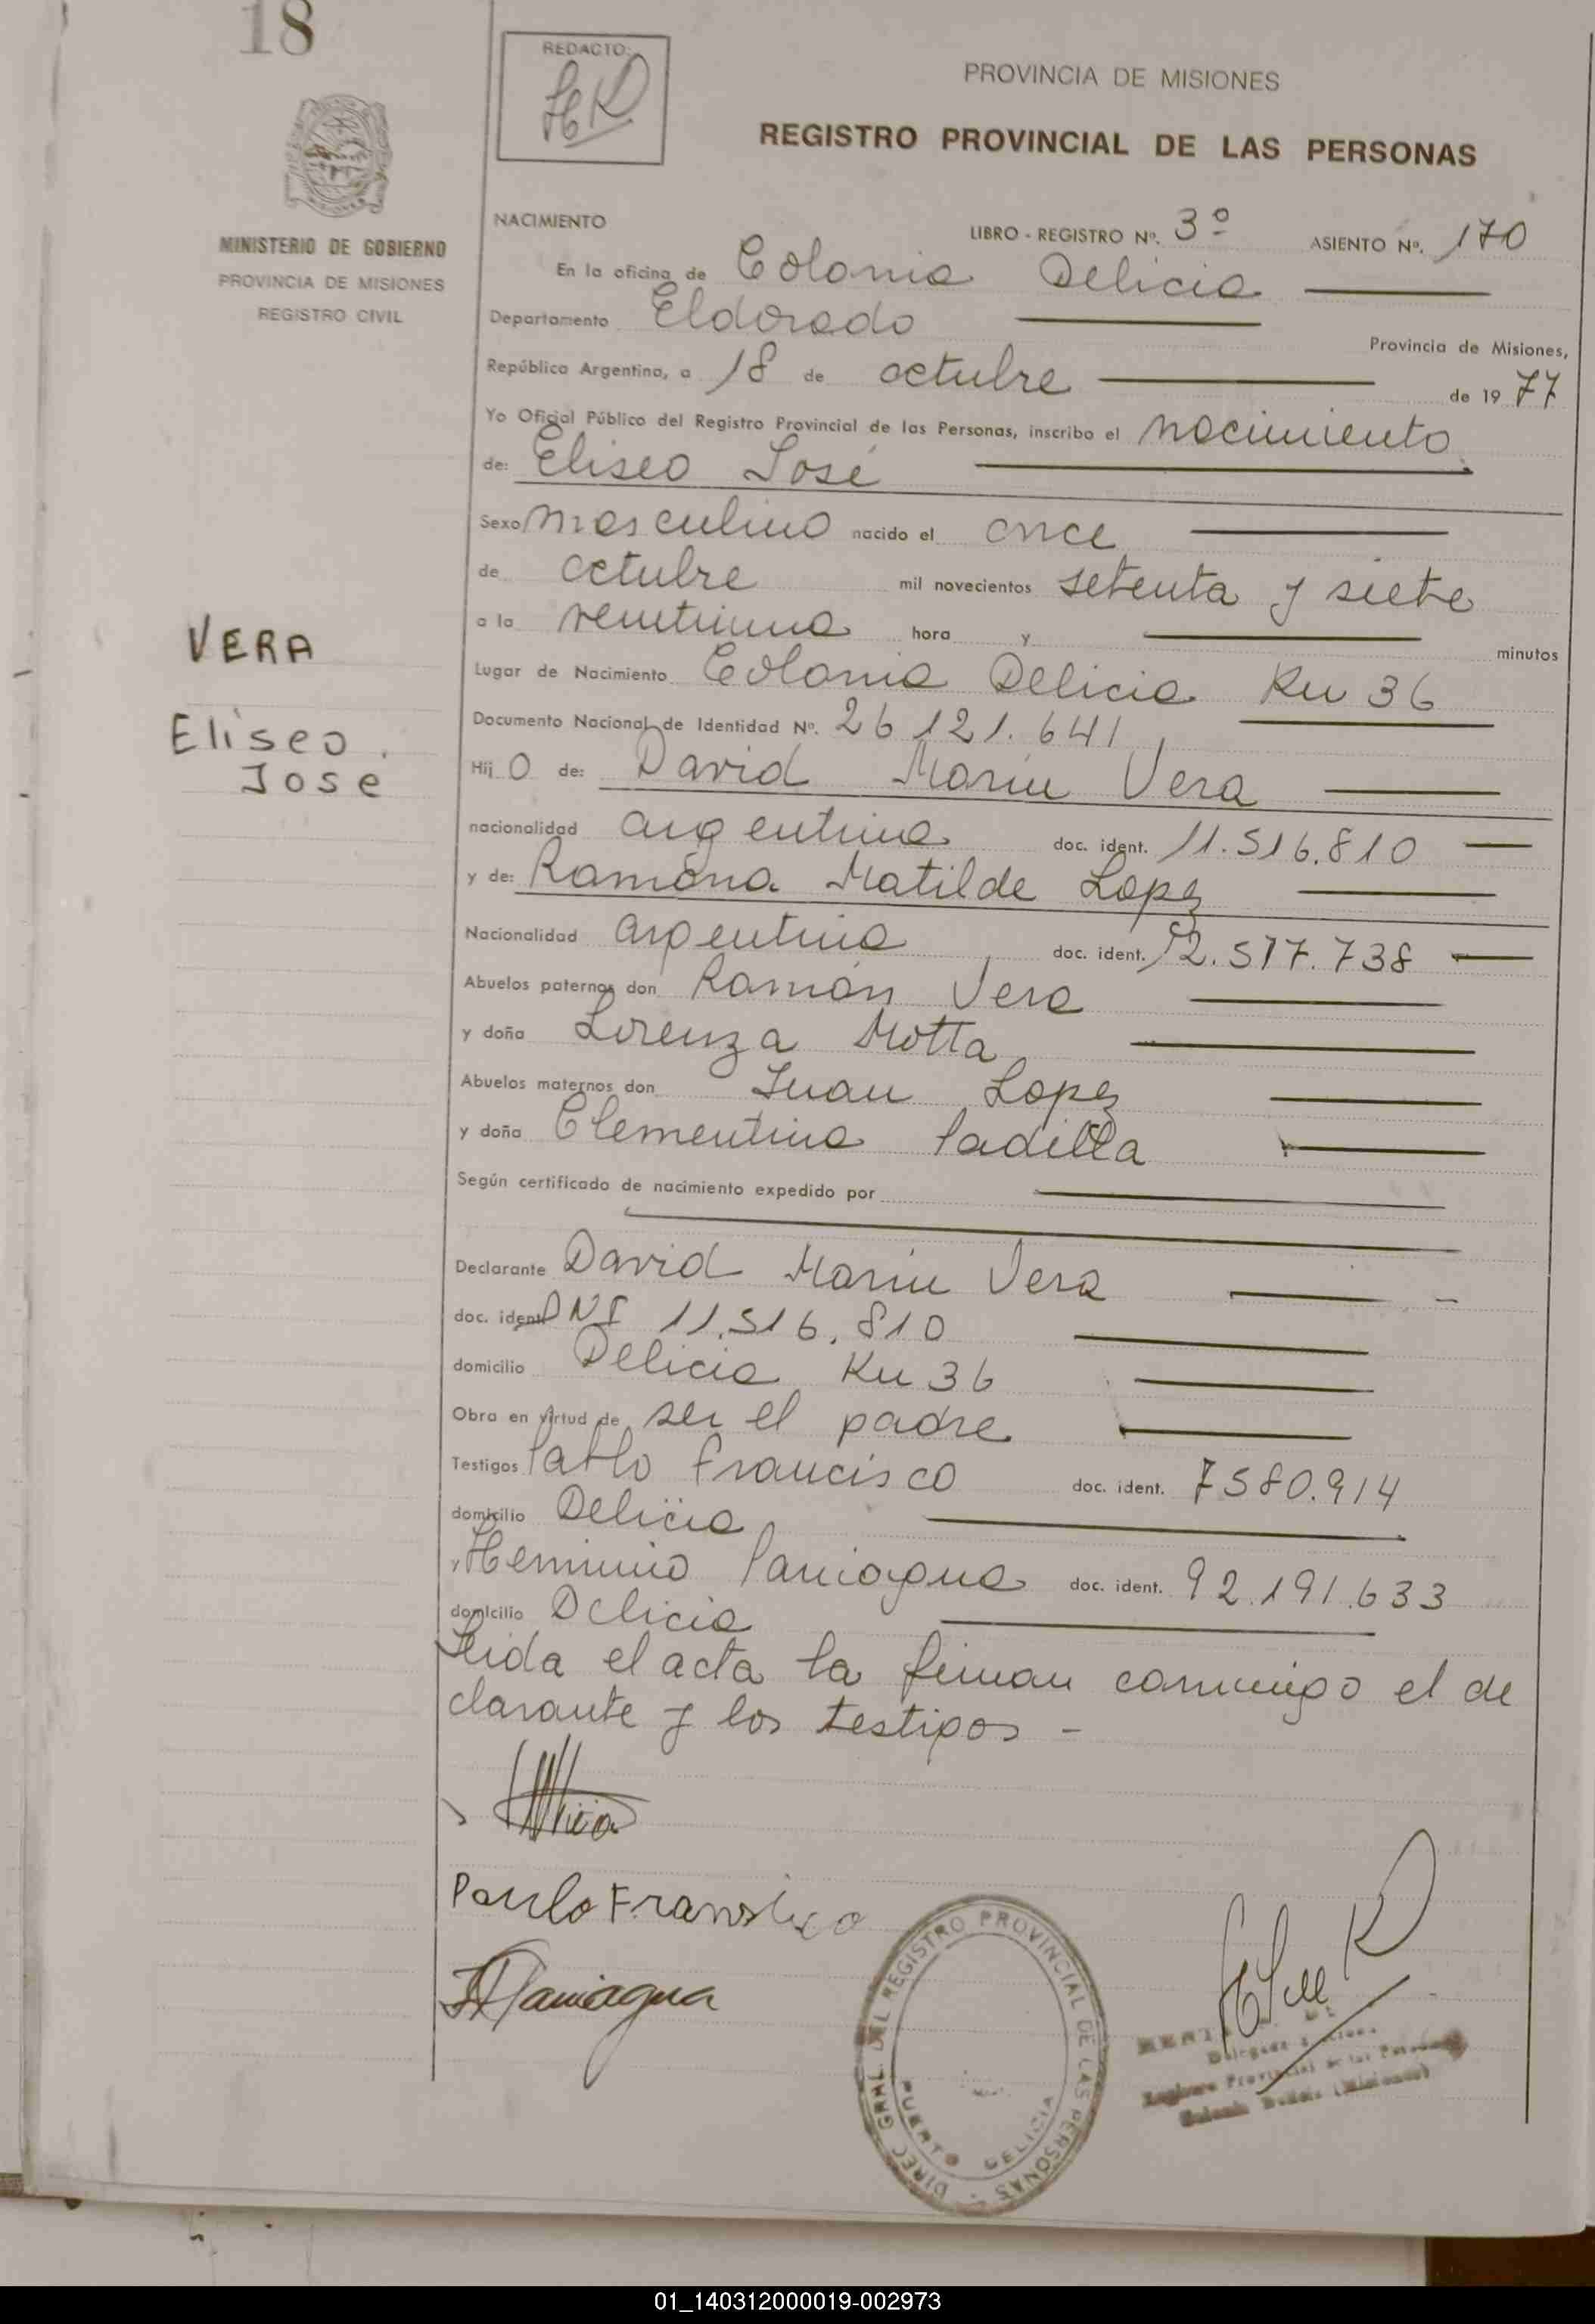 18
REDACTO:
HR
PROVINCIA DE MISIONES
REGISTRO PROVINCIAL DE LAS PERSONAS
MINISTERIO DE GOBIERNO
PROVINCIA DE MISIONES
REGISTRO CIVIL
NACIMIENTO
LIBRO - REGISTRO Nº. 3º ASIENTO Nº. 170
En la oficina de Colonia Delicia
Departamento Eldorado Provincia de Misiones,
República Argentina, a 18 de octubre de 1977
Yo Oficial Público del Registro Provincial de las Personas, inscribo el nacimiento
de: Eliseo José
Sexo masculino nacido el once
de octubre mil novecientos setenta y siete
a la veintiuna hora y minutos
VERA
Eliseo.
Jose
Lugar de Nacimiento Colonia Delicia Km 36
Documento Nacional de Identidad Nº. 26.121.641
Hij o de: David Marin Vera
nacionalidad argentina doc. ident. 11.516.810
y de: Ramóna Matilde Lopez
Nacionalidad argentina doc. ident. 12.517.738
Abuelos paternos don Ramón Vera
y doña Lorenza Motta
Abuelos maternos don Juan Lopez
y doña Clementina Padilla
Según certificado de nacimiento expedido por
Declarante David Marin Vera
doc. ident. DNI 11.516.810
domicilio Delicia Km 36
Obra en virtud de ser el padre
Testigos Pablo Francisco doc. ident. 7580.914
domicilio Delicia
y Herminio Paniagua doc. ident. 92.191.633
domicilio Delicia
Leida el acta la firman conmigo el de
clarante y los testigos -
Paulo Fransisco
HPaniagua
DIREC. GRAL. DEL REGISTRO PROVINCIAL DE LAS PERSONAS
PUERTO DELICIA
Registro Provincial de las Personas
Colonia Delicia (Misiones)
01_140312000019-002973